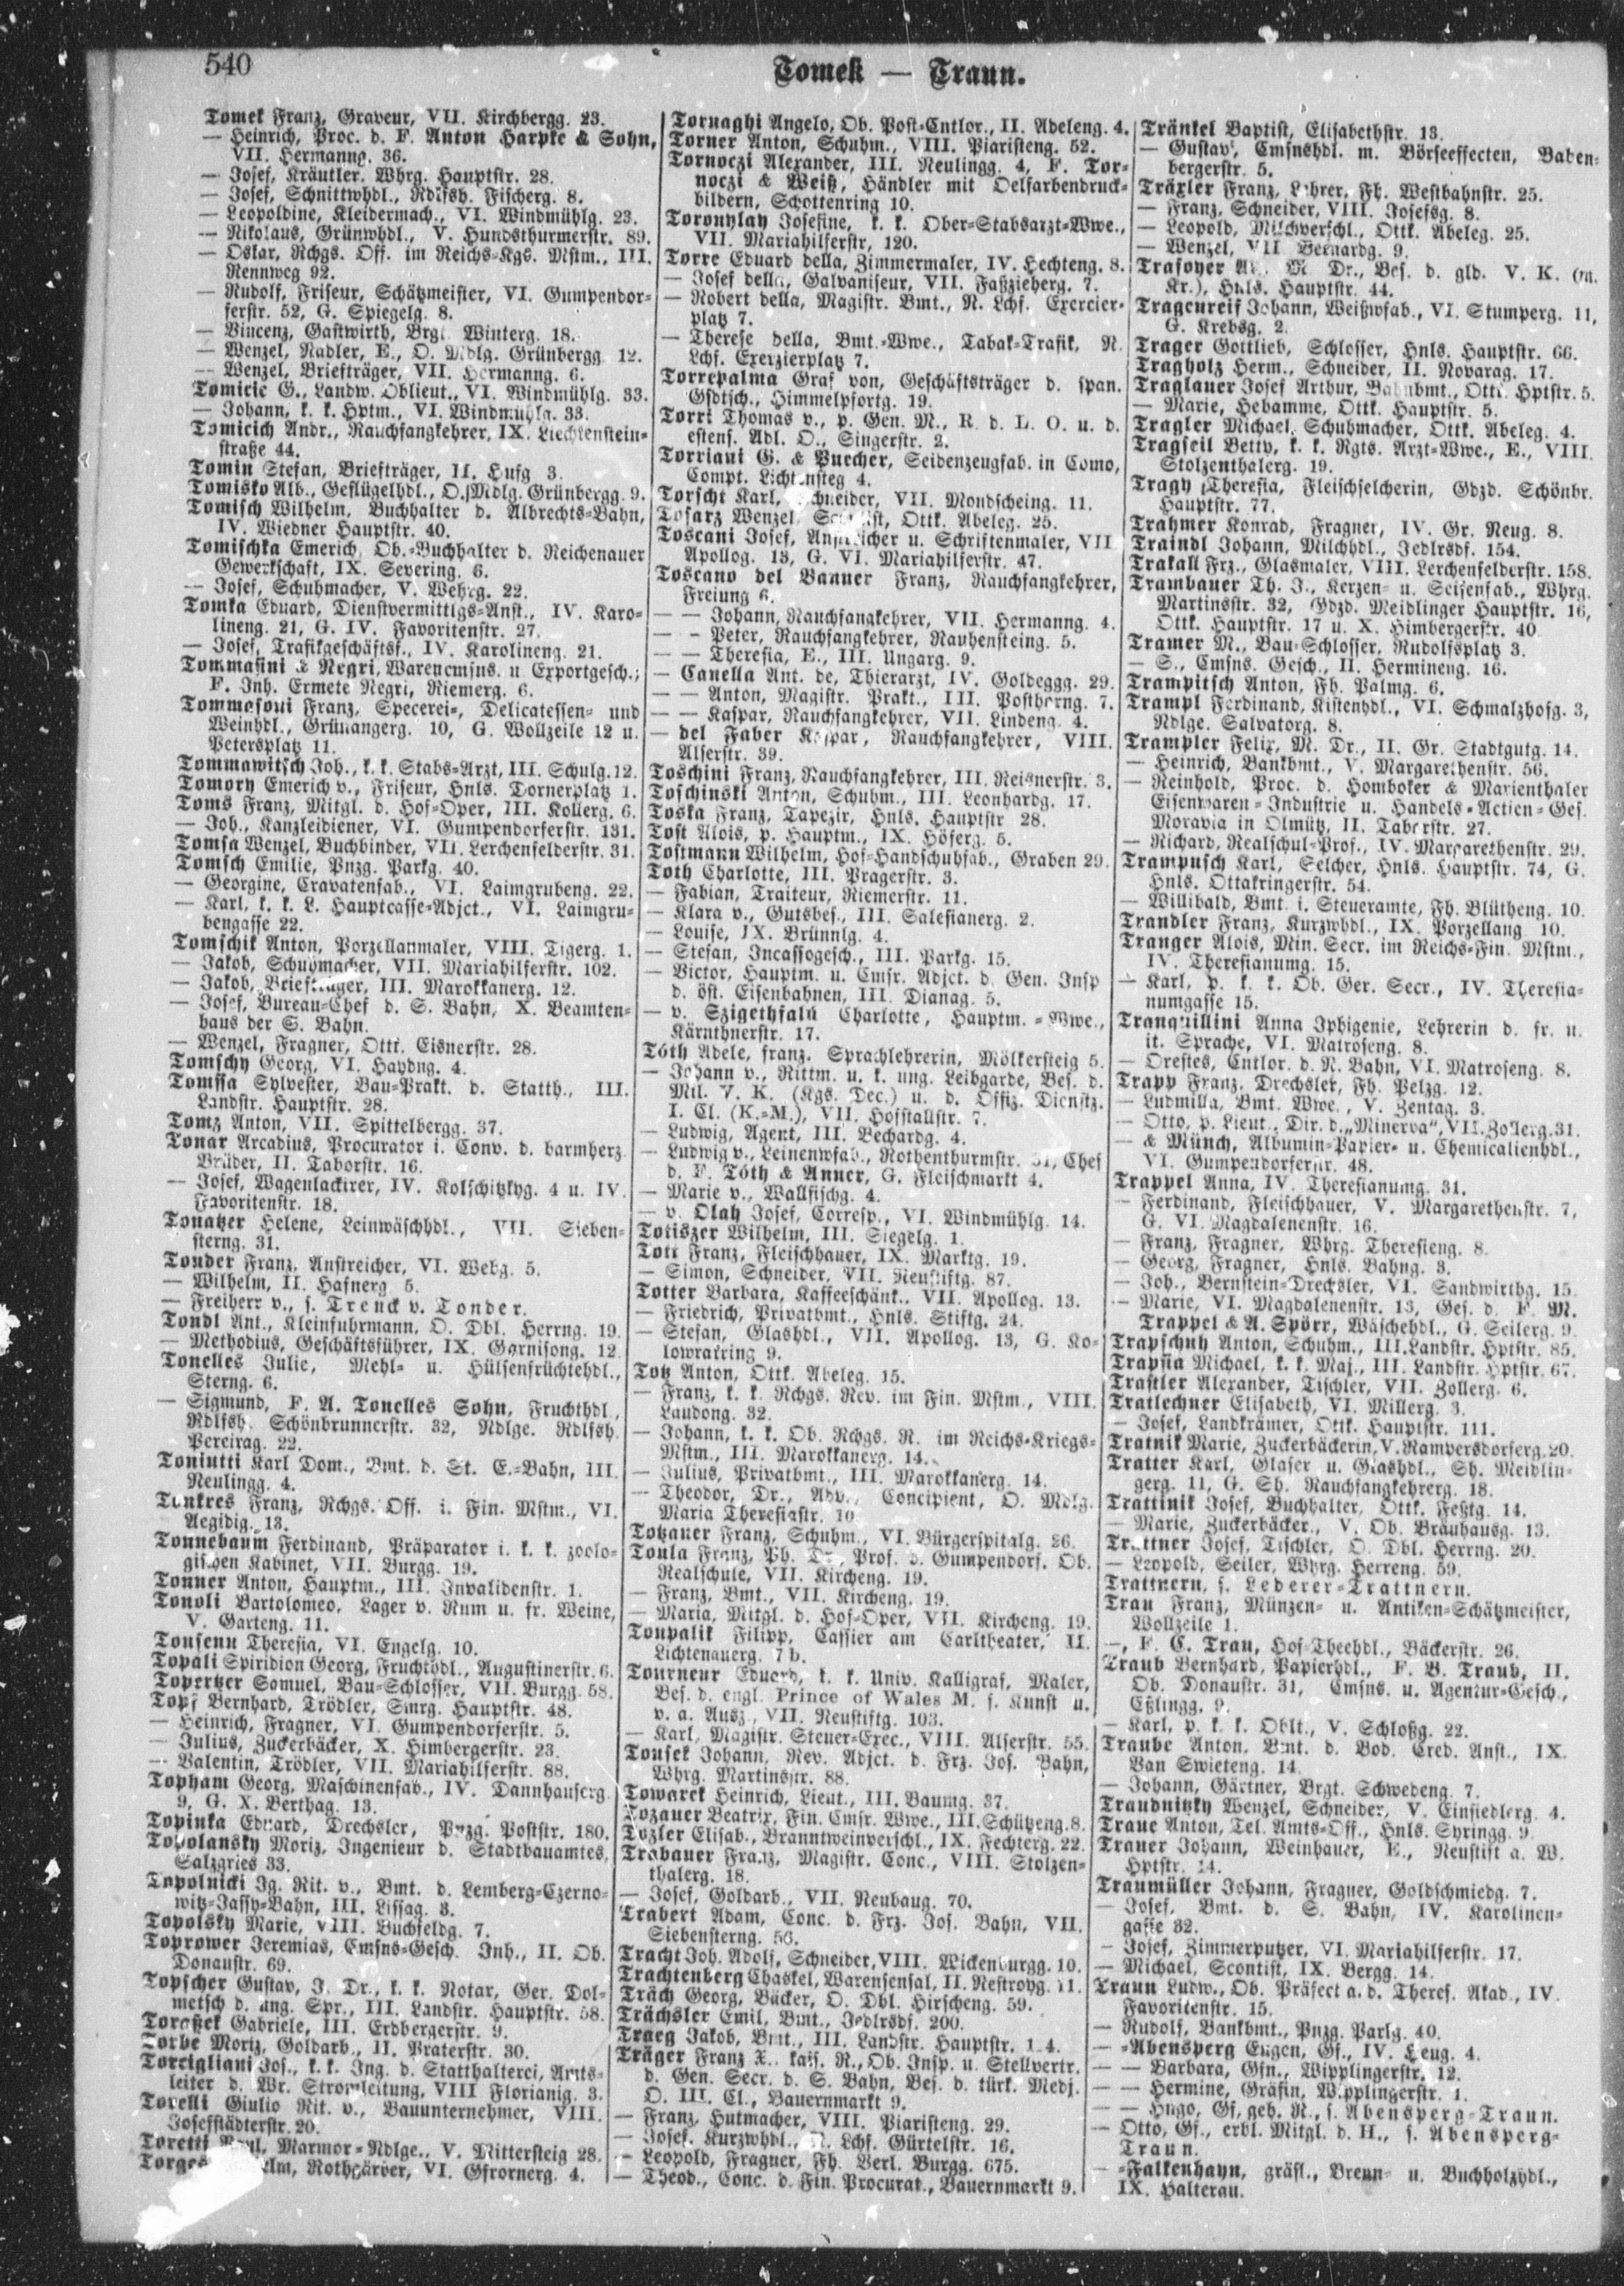 540
Tomek — Traun.
Tomek Franz, Graveur, VII. Kirchbergg. 23.
— Heinrich, Proc. d. F. Anton Harpke & Sohn,
VII. Hermanng. 36.
— Josef, Kräutler. Whrg. Hauptstr. 28.
— Josef, Schnittwhdl., Rdlfsh. Fischerg. 8.
— Leopoldine, Kleidermach., VI. Windmühlg. 23.
— Nikolaus, Grünwhdl., V. Hundsthurmerstr. 89.
— Oskar, Rchgs. Off. im Reichs-Kgs. Mstm., III.
Rennweg 92.
— Rudolf, Friseur, Schätzmeister, VI. Gumpendor-
ferstr. 52, G. Spiegelg. 8.
— Vincenz, Gastwirth, Brgt. Winterg. 18.
— Wenzel, Nadler, E., O. Mdlg. Grünbergg. 12.
— Wenzel, Briefträger, VII. Hermanng. 6.
Tomicic G., Landw. Oblieut., VI. Windmühlg. 33.
— Johann, k. k. Hptm., VI. Windmühlg. 33.
Tomicich Andr., Rauchfangkehrer, IX. Liechtenstein-
straße 44.
Tomin Stefan, Briefträger, II. Hufg 3.
Tomisko Alb., Geflügelhdl., O. Mdlg. Grünbergg. 9.
Tomisch Wilhelm, Buchhalter d. Albrechts-Bahn,
IV. Wiedner Hauptstr. 40.
Tomischka Emerich, Ob.-Buchhalter d. Reichenauer
Gewerkschaft, IX. Severing. 6.
— Josef, Schuhmacher, V. Wehrg. 22.
Tomka Eduard, Dienstvermittlgs-Anst., IV. Karo-
lineng. 21, G. IV. Favoritenstr. 27.
— Josef, Trafikgeschäftsf., IV. Karolineng. 21.
Tommasini & Negri, Warencmsns. u Exportgesch.;
F. Inh. Ermete Negri, Riemerg. 6.
Tommasoni Franz, Specerei-, Delicatessen- und
Weinhdl., Grünangerg. 10, G. Wollzeile 12 u.
Petersplatz 11.
Tommawitsch Joh., k. k. Stabs-Arzt, III. Schulg. 12.
Tomory Emerich v., Friseur, Hnls. Dornerplatz 1.
Toms Franz, Mitgl. d. Hof-Oper, III. Kollerg. 6.
— Joh., Kanzleidiener, VI. Gumpendorferstr. 131.
Tomsa Wenzel, Buchbinder, VII. Lerchenfelderstr. 31.
Tomsch Emilie, Pnzg. Parkg. 40.
— Georgine, Cravatenfab., VI. Laimgrubeng. 22.
— Karl, k. k. L. Hauptcasse-Adjct., VI. Laimgru-
bengasse 22.
Tomschik Anton, Porzellanmaler, VIII. Tigerg. 1.
— Jakob, Schuhmacher, VII. Mariahilferstr. 102.
— Jakob, Briefträger, III. Marokkanerg. 12.
— Josef, Bureau-Chef d. S. Bahn, X. Beamten-
haus der S. Bahn.
— Wenzel, Fragner, Ottk. Eisnerstr. 28.
Tomschy Georg, VI. Haydng. 4.
Tomssa Sylvester, Bau-Prakt. d. Statth., III.
Landstr. Hauptstr. 28.
Tomz Anton, VII. Spittelbergg. 37.
Tonar Arcadius, Procurator i. Conv. d. barmherz.
Brüder, II. Taborstr. 16.
— Josef, Wagenlackirer, IV. Kolschitzkyg. 4 u. IV.
Favoritenstr. 18.
Tonatzer Helene, Leinwäschhdl., VII. Sieben-
sterng. 31.
Tonder Franz, Anstreicher, VI. Webg. 5.
— Wilhelm, II. Hafnerg 5.
— Freiherr v., s. Trenck v. Tonder.
Tondl Ant., Kleinfuhrmann, O. Dbl. Herrng. 19.
— Methodius, Geschäftsführer, IX. Garnisong. 12
Tonelles Julie, Mehl- u. Hülsenfrüchtehdl.,
Sterng. 6.
— Sigmund, F. A. Tonelles Sohn, Fruchthdl.,
Rdlfsh. Schönbrunnerstr. 32, Ndlge. Rdlfsh.
Pereirag. 22.
Toniutti Karl Dom., Bmt. d. St. E.-Bahn, III.
Neulingg. 4.
Tonkres Franz, Rchgs. Off. i. Fin. Mstm., VI.
Aegidig. 13.
Tonnebaum Ferdinand, Präparator i. k. k. zoolo-
gischen Kabinet, VII. Burgg. 19.
Tonner Anton, Hauptm., III. Invalidenstr. 1.
Tonoli Bartolomeo, Lager v. Rum u. fr. Weine,
V. Garteng. 11.
Tonsenu Theresia, VI. Engelg. 10.
Topali Spiridion Georg, Fruchthdl., Augustinerstr. 6.
Topertzer Samuel, Bau-Schlosser, VII. Burgg. 58.
Topf Bernhard, Trödler, Smrg. Hauptstr. 48.
— Heinrich, Fragner, VI. Gumpendorferstr. 5.
— Julius, Zuckerbäcker, X. Himbergerstr. 23.
— Valentin, Trödler, VII. Mariahilferstr. 88.
Topham Georg, Maschinenfab., IV. Dannhauserg.
9, G. X. Berthag. 13.
Topinka Eduard, Drechsler, Pnzg. Poststr. 180.
Topolansky Moriz, Ingenieur d. Stadtbauamtes,
Salzgries 33.
Topolnicki Ig. Rit. v., Bmt. d. Lemberg-Czerno-
witz-Jassy-Bahn, III. Lissag. 3.
Topolsky Marie, VIII. Buchfeldg. 7.
Toprower Jeremias, Cmsns-Gesch. Inh., II. Ob.
Donaustr. 69.
Topscher Gustav, J. Dr., k. k. Notar, Ger. Dol-
metsch d. ung. Spr., III. Landstr. Hauptstr. 58.
Toraßek Gabriele, III. Erdbergerstr. 9.
Torbe Moriz, Goldarb., II. Praterstr. 30.
Torcigliani Jos., k. k. Ing. d. Statthalterei, Amts-
leiter d. Wr. Stromleitung, VIII Florianig. 3.
Torelli Giulio Rit. v., Bauunternehmer, VIII.
Josefstädterstr. 20.
Toretti Marmor-Ndlge., V. Mittersteig 28.
Torges Rothgärber, VI. Gfrornerg. 4.
Tornaghi Angelo, Ob. Post-Cntlor., II. Adeleng. 4.
Torner Anton, Schuhm., VIII. Piaristeng. 52.
Tornoczi Alexander, III. Neulingg. 4, F. Tor-
noczi & Weiß, Händler mit Oelfarbendruck-
bildern, Schottenring 10.
Toronylay Josefine, k. k. Ober-Stabsarzt-Wwe.,
VII. Mariahilferstr. 120.
Torre Eduard della, Zimmermaler, IV. Hechteng. 8.
— Josef della, Galvaniseur, VII. Faßzieherg. 7.
— Robert della, Magistr. Bmt., N. Lchf. Exercier-
platz 7.
— Therese della, Bmt.-Wwe., Tabak-Trafik, N.
Lchf. Exerzierplatz 7.
Torrepalma Graf von, Geschäftsträger d. span.
Gsdtsch., Himmelpfortg. 19.
Torri Thomas v., p. Gen. M., R. d. L. O. u. d.
estens. Adl. O., Singerstr. 2.
Torriani G. & Puecher, Seidenzeugfab. in Como,
Compt. Lichtensteg 4.
Torscht Karl, Schneider, VII. Mondscheing. 11.
Tosarz Wenzel, Ottk. Abeleg. 25.
Toscani Josef, Anstreicher u. Schriftenmaler, VII
Apollog. 13, G. VI. Mariahilferstr. 47.
Toscano del Banner Franz, Rauchfangkehrer,
Freiung 6.
— — Johann, Rauchfangkehrer, VII. Hermanng. 4.
— — Peter, Rauchfangkehrer, Rauhensteing. 5.
— — Theresia, E., III. Ungarg. 9.
— Canella Ant. de, Thierarzt, IV. Goldeggg. 29.
— — Anton, Magistr. Prakt., III. Posthorng. 7.
— — Kaspar, Rauchfangkehrer, VII. Lindeng. 4.
— del Faber Kaspar, Rauchfangkehrer, VIII.
Alserstr. 39.
Toschini Franz, Rauchfangkehrer, III. Reisnerstr. 3.
Toschinski Anton, Schuhm., III. Leonhardg. 17.
Toska Franz, Tapezir, Hnls. Hauptstr 28.
Tost Alois, p. Hauptm., IX. Höferg. 5.
Tostmann Wilhelm, Hof-Handschuhfab., Graben 29.
Toth Charlotte, III. Pragerstr. 3.
— Fabian, Traiteur, Riemerstr. 11.
— Klara v., Gutsbes., III. Salesianerg. 2.
— Louise, IX. Brünnlg. 4.
— Stefan, Incassogesch., III. Parkg. 15.
— Victor, Hauptm. u. Cmsr. Adjct. d. Gen. Insp
d. öst. Eisenbahnen, III. Dianag. 5.
— v. Szigethfalu Charlotte, Hauptm.-Wwe.,
Kärnthnerstr. 17.
Tóth Adele, franz. Sprachlehrerin, Mölkersteig 5.
— Johann v., Rittm. u. k. ung. Leibgarde, Bes. d.
Mil. V. K. (Kgs. Dec.) u. d. Offiz. Dienstz.
I. Cl. (K.-M.), VII. Hofstallstr. 7.
— Ludwig, Agent, III. Bechardg. 4.
— Ludwig v., Leinenwfab., Rothenthurmstr. 31, Chef
d. F. Tóth & Anner, G. Fleischmarkt 4.
— Marie v., Wallfischg. 4.
— v. Olah Josef, Corresp., VI. Windmühlg. 14.
Totiszer Wilhelm, III. Siegelg. 1.
Tott Franz, Fleischhauer, IX. Marktg. 19.
— Simon, Schneider, VII. Neustiftg. 87.
Totter Barbara, Kaffeeschänk., VII. Apollog. 13.
— Friedrich, Privatbmt., Hnls. Stiftg. 24.
— Stefan, Glashdl., VII. Apollog. 13, G. Ko-
lowratring 9.
Totz Anton, Ottk. Abeleg. 15.
— Franz, k. k. Rchgs. Rev. im Fin. Mstm., VIII.
Laudong. 32.
— Johann, k. k. Ob. Rchgs. R. im Reichs-Kriegs-
Mstm., III. Marokkanerg. 14.
— Julius, Privatbmt., III. Marokkanerg. 14.
— Theodor, Dr., Adv., Concipient, O. Mdlg.
Maria Theresiastr. 10
Totzauer Franz, Schuhm., VI. Bürgerspitalg. 26.
Toula Franz, Ph. Dr., Prof. d. Gumpendorf. Ob.
Realschule, VII. Kircheng. 19.
— Franz, Bmt., VII. Kircheng. 19.
— Maria, Mitgl. d. Hof-Oper, VII. Kircheng. 19.
Toupalik Filipp, Cassier am Carltheater, II.
Lichtenauerg. 7 b.
Tourneur Eduard, k. k. Univ. Kalligraf, Maler,
Bes. d. engl. Prince of Wales M. f. Kunst u.
v. a. Ausz., VII. Neustiftg. 103.
— Karl, Magistr. Steuer-Exec., VIII. Alserstr. 55.
Tousek Johann, Rev. Adjct. d. Frz. Jos. Bahn,
Whrg. Martinsstr. 88.
Towarek Heinrich, Lieut., III. Baumg. 37.
Tozauer Beatrix, Fin. Cmsr. Wwe., III. Schützeng. 8.
Tozler Elisab., Branntweinverschl., IX. Fechterg. 22.
Trabauer Franz, Magistr. Conc., VIII. Stolzen-
thalerg. 18.
— Josef, Goldarb., VII. Neubaug. 70.
Trabert Adam, Conc. d. Frz. Jos. Bahn, VII.
Siebensterng. 56.
Tracht Joh. Adolf, Schneider, VIII. Wickenburgg. 10.
Trachtenberg Chaskel, Warensensal, II. Nestroyg. 11.
Träch Georg, Bäcker, O. Dbl. Hirscheng. 59.
Trächsler Emil, Bmt., Jedlrsdf. 200.
Traeg Jakob, Bmt., III. Landstr. Hauptstr.
Träger Franz X., kais. R., Ob. Insp. u. Stellvertr.
d. Gen. Secr. d. S. Bahn, Bes. d. türk. Medj.
O. III. Cl., Bauernmarkt 9.
— Franz, Hutmacher, VIII. Piaristeng. 29.
— Josef, Kurzwhdl., N. Lchf. Gürtelstr. 16.
— Leopold, Fragner, Fh. Verl. Burgg. 675.
— Theod., Conc. d. Fin. Procurat., Bauernmarkt 9.
Tränkel Baptist, Elisabethstr. 13.
— Gustav, Cmsnshdl. m. Börseeffecten, Baben-
bergerstr. 5.
Träxler Franz, Lehrer, Fh. Westbahnstr. 25.
— Franz, Schneider, VIII. Josefsg. 8.
— Leopold, Milchverschl., Ottk. Abeleg. 25.
— Wenzel, VII Bernardg. 9.
Trafoyer M. Dr., Bes. d. gld. V. K. (m.
Kr.), Hnls. Hauptstr. 44.
Trageureif Johann, Weißwfab., VI. Stumperg. 11,
G. Krebsg. 2.
Trager Gottlieb, Schlosser, Hnls. Hauptstr. 66.
Tragholz Herm., Schneider, II. Novarag. 17.
Traglauer Josef Arthur, Bahnbmt., Ottk. Hptstr. 5.
— Marie, Hebamme, Ottk. Hauptstr. 5.
Tragler Michael, Schuhmacher, Ottk. Abeleg. 4.
Tragseil Betty, k. k. Rgts. Arzt-Wwe., E., VIII.
Stolzenthalerg. 19.
Tragy Theresia, Fleischselcherin, Gdzd. Schönbr.
Hauptstr. 77.
Trahmer Konrad, Fragner, IV. Gr. Neug. 8.
Traindl Johann, Milchhdl., Jedlrsdf. 154.
Trakall Frz., Glasmaler, VIII. Lerchenfelderstr. 158.
Trambauer Th. J., Kerzen- u. Seifenfab., Whrg.
Martinsstr. 32, Gdzd. Meidlinger Hauptstr. 16,
Ottk. Hauptstr. 17 u. X. Himbergerstr. 40.
Tramer M., Bau-Schlosser, Rudolfsplatz 3.
— S., Cmsns. Gesch., II. Hermineng. 16.
Trampitsch Anton, Fh. Palmg. 6.
Trampl Ferdinand, Kistenhdl., VI. Schmalzhofg. 3,
Ndlge. Salvatorg. 8.
Trampler Felix, M. Dr., II. Gr. Stadtgutg. 14.
— Heinrich, Bankbmt., V. Margarethenstr. 56.
— Reinhold, Proc. d. Homboker & Marienthaler
Eisenwaren-Industrie u. Handels-Actien-Ges.
Moravia in Olmütz, II. Taborstr. 27.
— Richard, Realschul-Prof., IV. Margarethenstr. 29.
Trampusch Karl, Selcher, Hnls. Hauptstr. 74, G.
Hnls. Ottakringerstr. 54.
— Willibald, Bmt. i. Steueramte, Fh. Blütheng. 10.
Trandler Franz, Kurzwhdl., IX. Porzellang. 10.
Tranger Alois, Min. Secr. im Reichs-Fin. Mstm.,
IV. Theresianumg. 15.
— Karl, p. k. k. Ob. Ger. Secr., IV. Theresia-
numgasse 15.
Tranquillini Anna Iphigenie, Lehrerin d. fr. u.
it. Sprache, VI. Matroseng. 8.
— Orestes, Cntlor. d. N. Bahn, VI. Matroseng. 8.
Trapp Franz, Drechsler, Fh. Pelzg. 12.
— Ludmilla, Bmt. Wwe., V. Zentag. 3.
— Otto, p. Lieut., Dir. d. „Minerva", VII. Zollerg. 31.
— & Münch, Albumin-Papier- u. Chemicalienhdl.,
VI. Gumpendorferstr. 48.
Trappel Anna, IV. Theresianumg. 31.
— Ferdinand, Fleischhauer, V. Margarethenstr. 7,
G. VI. Magdalenenstr. 16.
— Franz, Fragner, Whrg. Theresieng. 8.
— Georg, Fragner, Hnls. Bahng. 3.
— Joh., Bernstein-Drechsler, VI. Sandwirthg. 15.
— Marie, VI. Magdalenenstr. 13, Ges. d. F. M.
Trappel & A. Spörr, Wäschehdl., G. Seilerg. 9.
Trapschuh Anton, Schuhm., III. Landstr. Hptstr. 85.
Trapsia Michael, k. k. Maj., III. Landstr. Hptstr. 67.
Trastler Alexander, Tischler, VII. Zollerg. 6.
Tratlechner Elisabeth, VI. Millerg. 3.
— Josef, Landkrämer, Ottk. Hauptstr. 111.
Tratnik Marie, Zuckerbäckerin, V. Rampersdorferg. 20.
Tratter Karl, Glaser u. Glashdl., Sh. Meidlin-
gerg. 11, G. Sh. Rauchfangkehrerg. 18.
Trattinik Josef, Buchhalter, Ottk. Feßtg. 14.
— Marie, Zuckerbäcker., V. Ob. Bräuhausg. 13.
Trattner Josef, Tischler, O. Dbl. Herrng. 20.
— Leopold, Seiler, Whrg. Herreng. 59.
Trattnern, s. Lederer-Trattnern.
Trau Franz, Münzen- u. Antiken-Schätzmeister,
Wollzeile 1.
—, F. C. Trau, Hof-Theehdl., Bäckerstr. 26.
Traub Bernhard, Papierhdl., F. B. Traub, II.
Ob. Donaustr. 31, Cmsns. u. Agentur-Gesch.,
Eßlingg. 9.
— Karl, p. k. k. Oblt., V. Schloßg. 22.
Traube Anton, Bmt. d. Bod. Cred. Anst., IX.
Van Swieteng. 14.
— Johann, Gärtner, Brgt. Schwedeng. 7.
Traudnitzky Wenzel, Schneider, V. Einsiedlerg. 4.
Traue Anton, Tel. Amts-Off., Hnls. Syringg. 9.
Trauer Johann, Weinhauer, E., Neustift a. W.
Hptstr. 14.
Traumüller Johann, Fragner, Goldschmiedg. 7.
— Josef, Bmt. d. S. Bahn, IV. Karolinen-
gasse 32.
— Josef, Zimmerputzer, VI. Mariahilferstr. 17.
— Michael, Scontist, IX. Bergg. 14.
Traun Ludw., Ob. Präfect a. d. Theres. Akad., IV.
Favoritenstr. 15.
— Rudolf, Bankbmt., Pnzg. Parkg. 40.
— -Abensperg Eugen, Gf., IV. Heug. 4.
— — Barbara, Gfn., Wipplingerstr. 12.
— — Hermine, Gräfin, Wipplingerstr. 1.
— — Hugo, Gf. geh. R., s. Abensperg-Traun.
— Otto, Gf., erbl. Mitgl. d. H., s. Abensperg-
Traun.
— -Falkenhayn, gräfl., Brenn- u. Buchholzhdl.,
IX. Halterau.